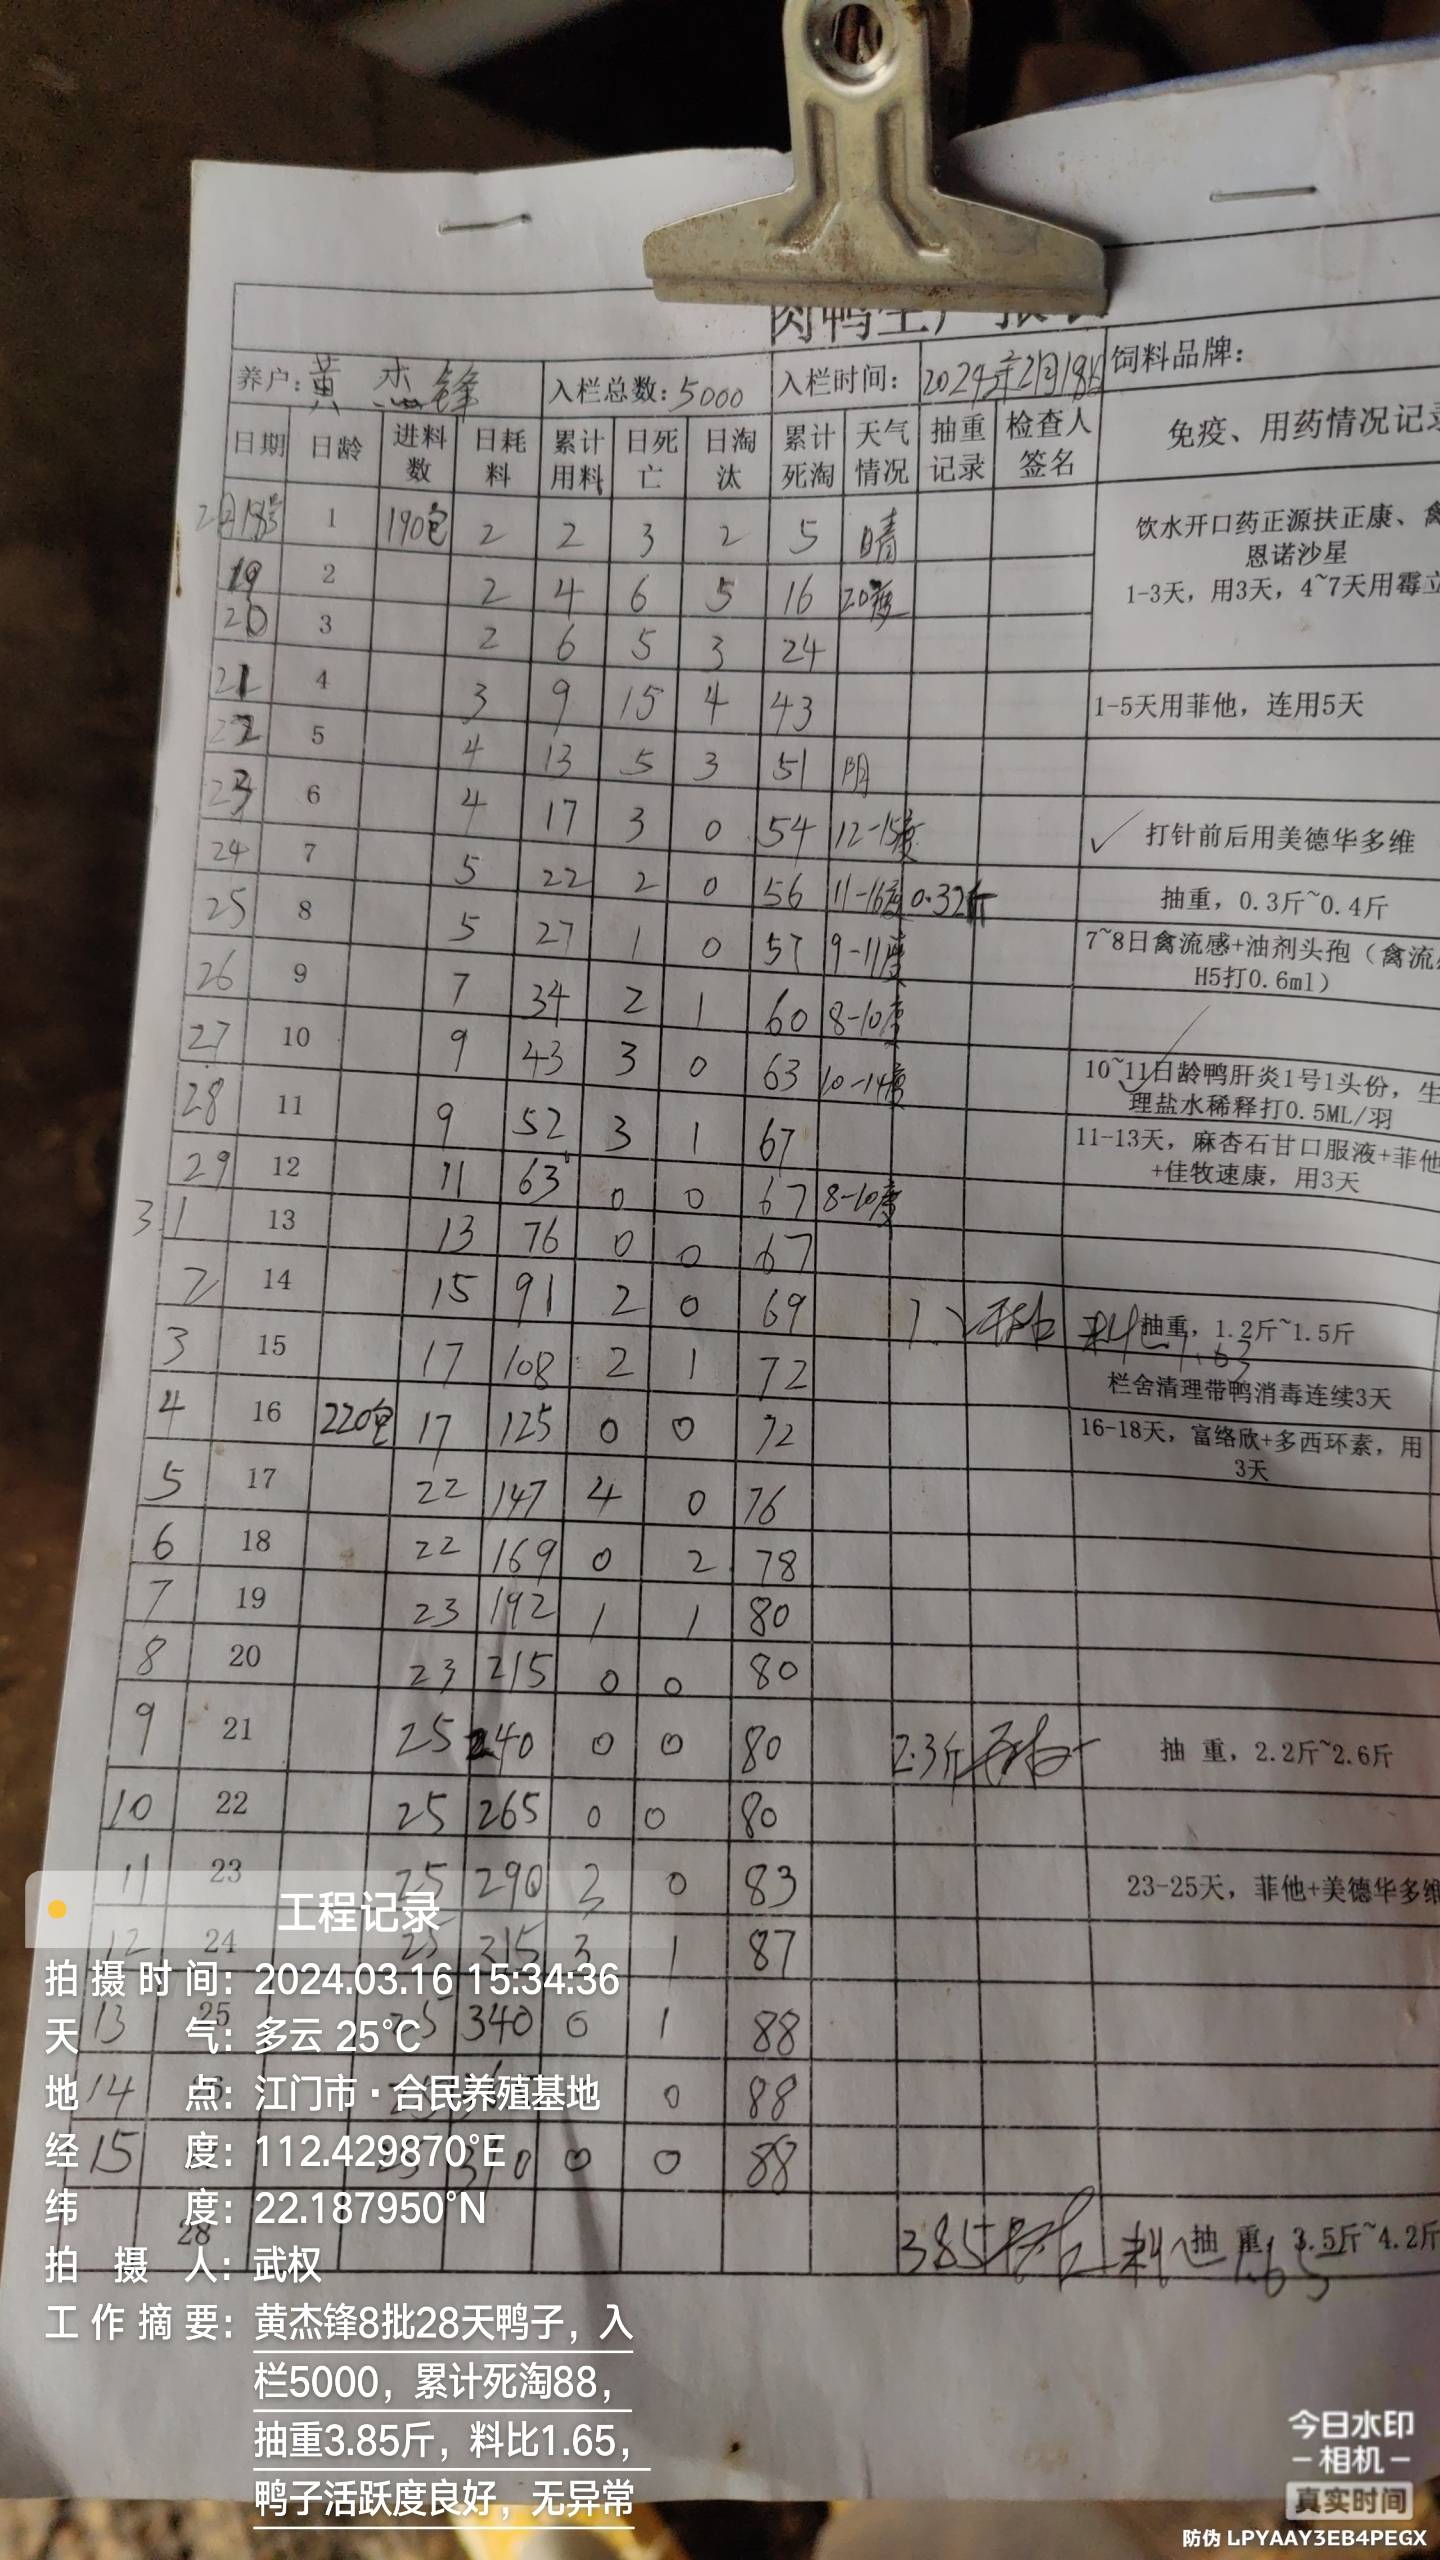 养户：黄杰锋 入栏总数：5000 入栏时间：2024年2月18日 饲料品牌：
日期 日龄 进料数 日耗料 累计用料 日死亡 日淘汰 累计死淘 天气情况 抽重记录 检查人签名 免疫、用药情况记录
2月18号 1 190包 2 2 3 2 5 晴 饮水开口药正源扶正康、禽
恩诺沙星
19 2 2 4 6 5 16 20度 1-3天，用3天，4~7天用霉立
20 3 2 6 5 3 24
21 4 3 9 15 4 43 1-5天用菲他，连用5天
22 5 4 13 5 3 51 阴
23 6 4 17 3 0 54 12-15度 ✓ 打针前后用美德华多维
24 7 5 22 2 0 56 11-16度 0.32斤 抽重，0.3斤~0.4斤
25 8 5 27 1 0 57 9-11度 7~8日禽流感+油剂头孢（禽流
H5打0.6ml）
26 9 7 34 2 1 60 8-10度
27 10 9 43 3 0 63 10-14度 10~11日龄鸭肝炎1号1头份，生
理盐水稀释打0.5ML/羽
28 11 9 52 3 1 67 11-13天，麻杏石甘口服液+菲他
+佳牧速康，用3天
29 12 11 63 0 0 67 8-10度
3.1 13 13 76 0 0 67
2 14 15 91 2 0 69 抽重，1.2斤~1.5斤
3 15 17 108 2 1 72 栏舍清理带鸭消毒连续3天
4 16 220包 17 125 0 0 72 16-18天，富络欣+多西环素，用
3天
5 17 22 147 4 0 76
6 18 22 169 0 2 78
7 19 23 192 1 1 80
8 20 23 215 0 0 80
9 21 25 240 0 0 80 2.3斤 抽 重，2.2斤~2.6斤
10 22 25 265 0 0 80
11 23 25 290 3 0 83 23-25天，菲他+美德华多维
12 24 25 315 3 1 87
13 25 25 340 0 1 88
14 0 88
15 0 0 88
28 3.85 料比 1.65 抽 重，3.5斤~4.2斤
工程记录
拍摄时间：2024.03.16 15:34:36
天气：多云 25℃
地点：江门市·合民养殖基地
经度：112.429870°E
纬度：22.187950°N
拍摄人：武权
工作摘要：黄杰锋8批28天鸭子，入
栏5000，累计死淘88，
抽重3.85斤，料比1.65，
鸭子活跃度良好，无异常
今日水印
-相机-
真实时间
防伪 LPYAAY3EB4PEGX